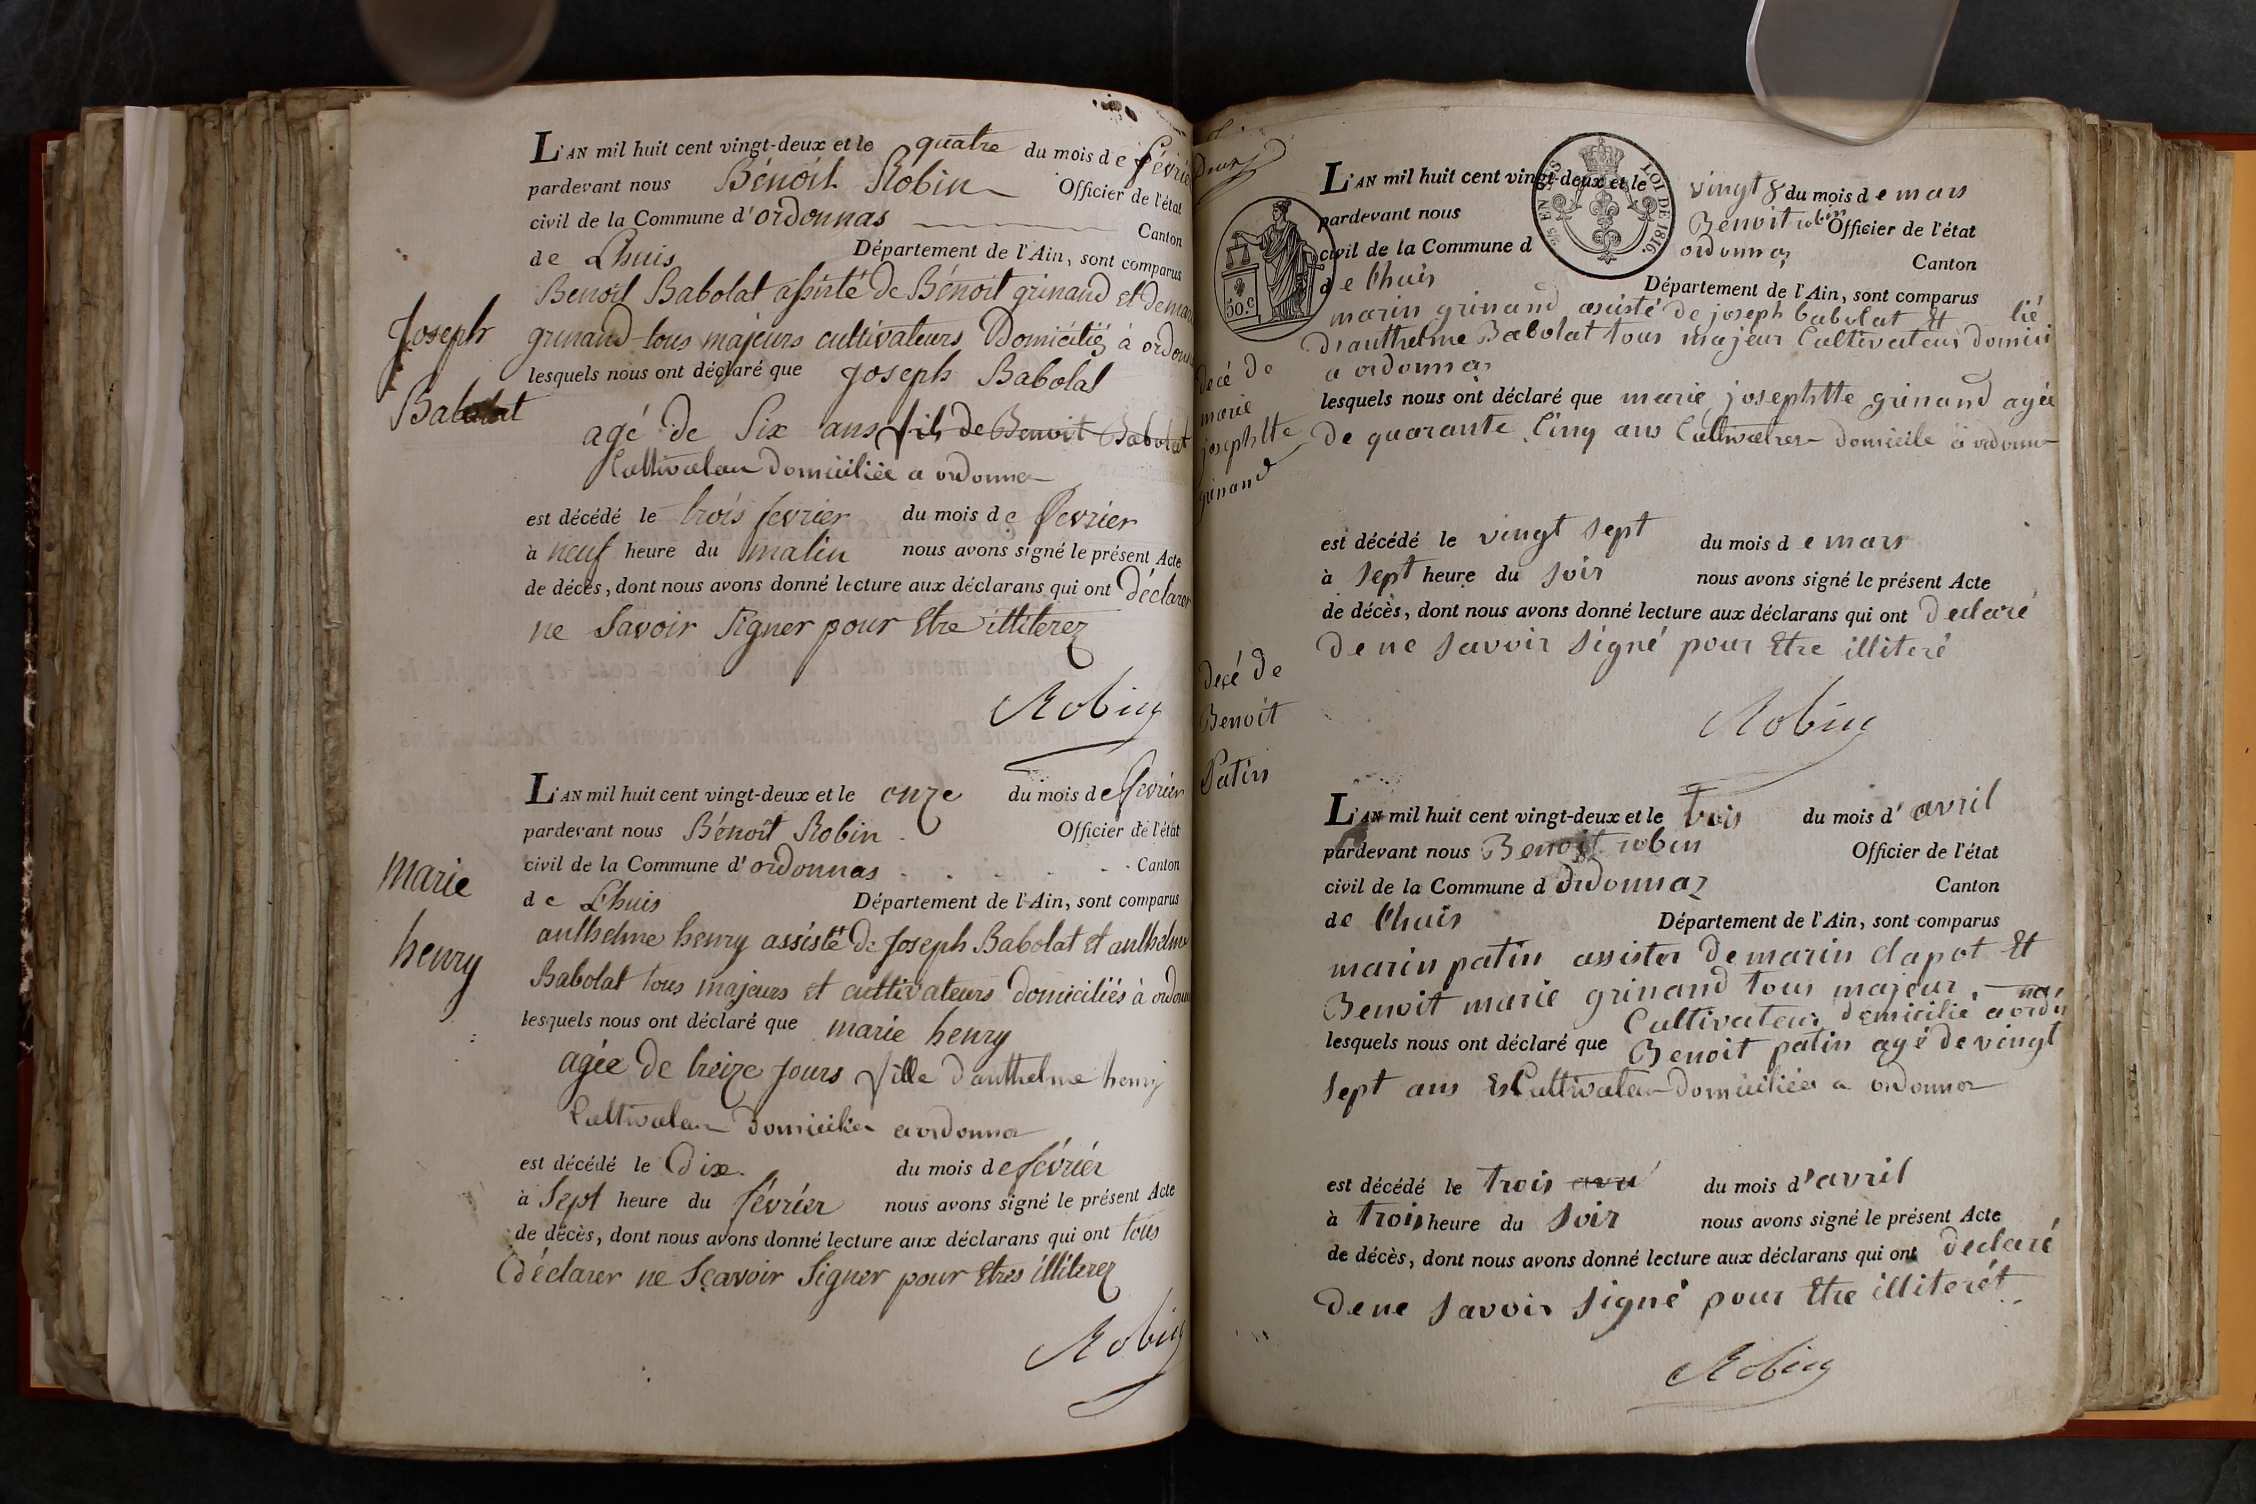 L'AN mil huit cent vingt-deux et le quatre du mois de févrie
pardevant nous Bénoit Robin Officier de l'état
civil de la Commune d'ordonnas Canton
de Lhuis Département de l'Ain, sont comparus
Benoit Babolat assisté de Bénoit grinand et de marin
Joseph
grinand tous majeurs cultivateurs Domiciliés à ordonn
lesquels nous ont déclaré que joseph Babolat
Babolat
agé de Six ans fils de Benoit Babolat
Cultivateur domiciliée a ordonna
est décédé le trois fevrier du mois de fevrier
à neuf heure du matin nous avons signé le présent Acte
de décès, dont nous avons donné lecture aux déclarans qui ont déclarer
ne Savoir Signer pour Etre illiterez
Robin
L'AN mil huit cent vingt-deux et le onze du mois de fevrier
pardevant nous Bénoît Robin Officier de l'état
civil de la Commune d'ordonnas Canton
marie
de Lhuis Département de l'Ain, sont comparus
anthelme henry assisté de Joseph Babolat et anthelme
henry
Babolat tous majeurs et cultivateurs domiciliés à ordonn
lesquels nous ont déclaré que marie henry
agée de treize Jours fille d'anthelme henry
Cultivateur domicilier a ordonna
est décédé le Dix du mois de février
à Sept heure du février nous avons signé le présent Acte
de décès, dont nous avons donné lecture aux déclarans qui ont tous
déclarer ne Sçavoir Signer pour Etres illiterez
Robin
deux
L'AN mil huit cent vingt-deux et le vingt 8 du mois de mars
pardevant nous Benoit robin Officier de l'état
civil de la Commune d ordonnaz Canton
de lhuis Département de l'Ain, sont comparus
EN SUS
LOI DE 1816
50.c
marin grinand assisté de joseph babolat Et lié
d'anthelme Babolat tous majeur Cultivateur domici
a ordonnaz
decé de
marie
josephtte
grinand
lesquels nous ont déclaré que marie josephtte grinand agée
de quarante Cinq ans Cultivatrer domicile a ordonna
est décédé le vingt sept du mois de mars
à sept heure du soir nous avons signé le présent Acte
de décès, dont nous avons donné lecture aux déclarans qui ont declaré
de ne savoir signé pour Etre illiteré
Robin
decé de
Benoit
Patin
L'AN mil huit cent vingt-deux et le trois du mois d'avril
pardevant nous Benoit robin Officier de l'état
civil de la Commune d ordonnaz Canton
de lhuis Département de l'Ain, sont comparus
marin patin assister de marin clapot Et
Benoit marie grinand tous majeur
Cultivateur domicilié a ordn
lesquels nous ont déclaré que Benoit patin agé de vingt
sept ans Cultivateur domiciliée a ordonna
est décédé le trois avri du mois d'avril
à trois heure du soir nous avons signé le présent Acte
de décès, dont nous avons donné lecture aux déclarans qui ont declaré
de ne savoir signé pour Etre illiterét
Robin